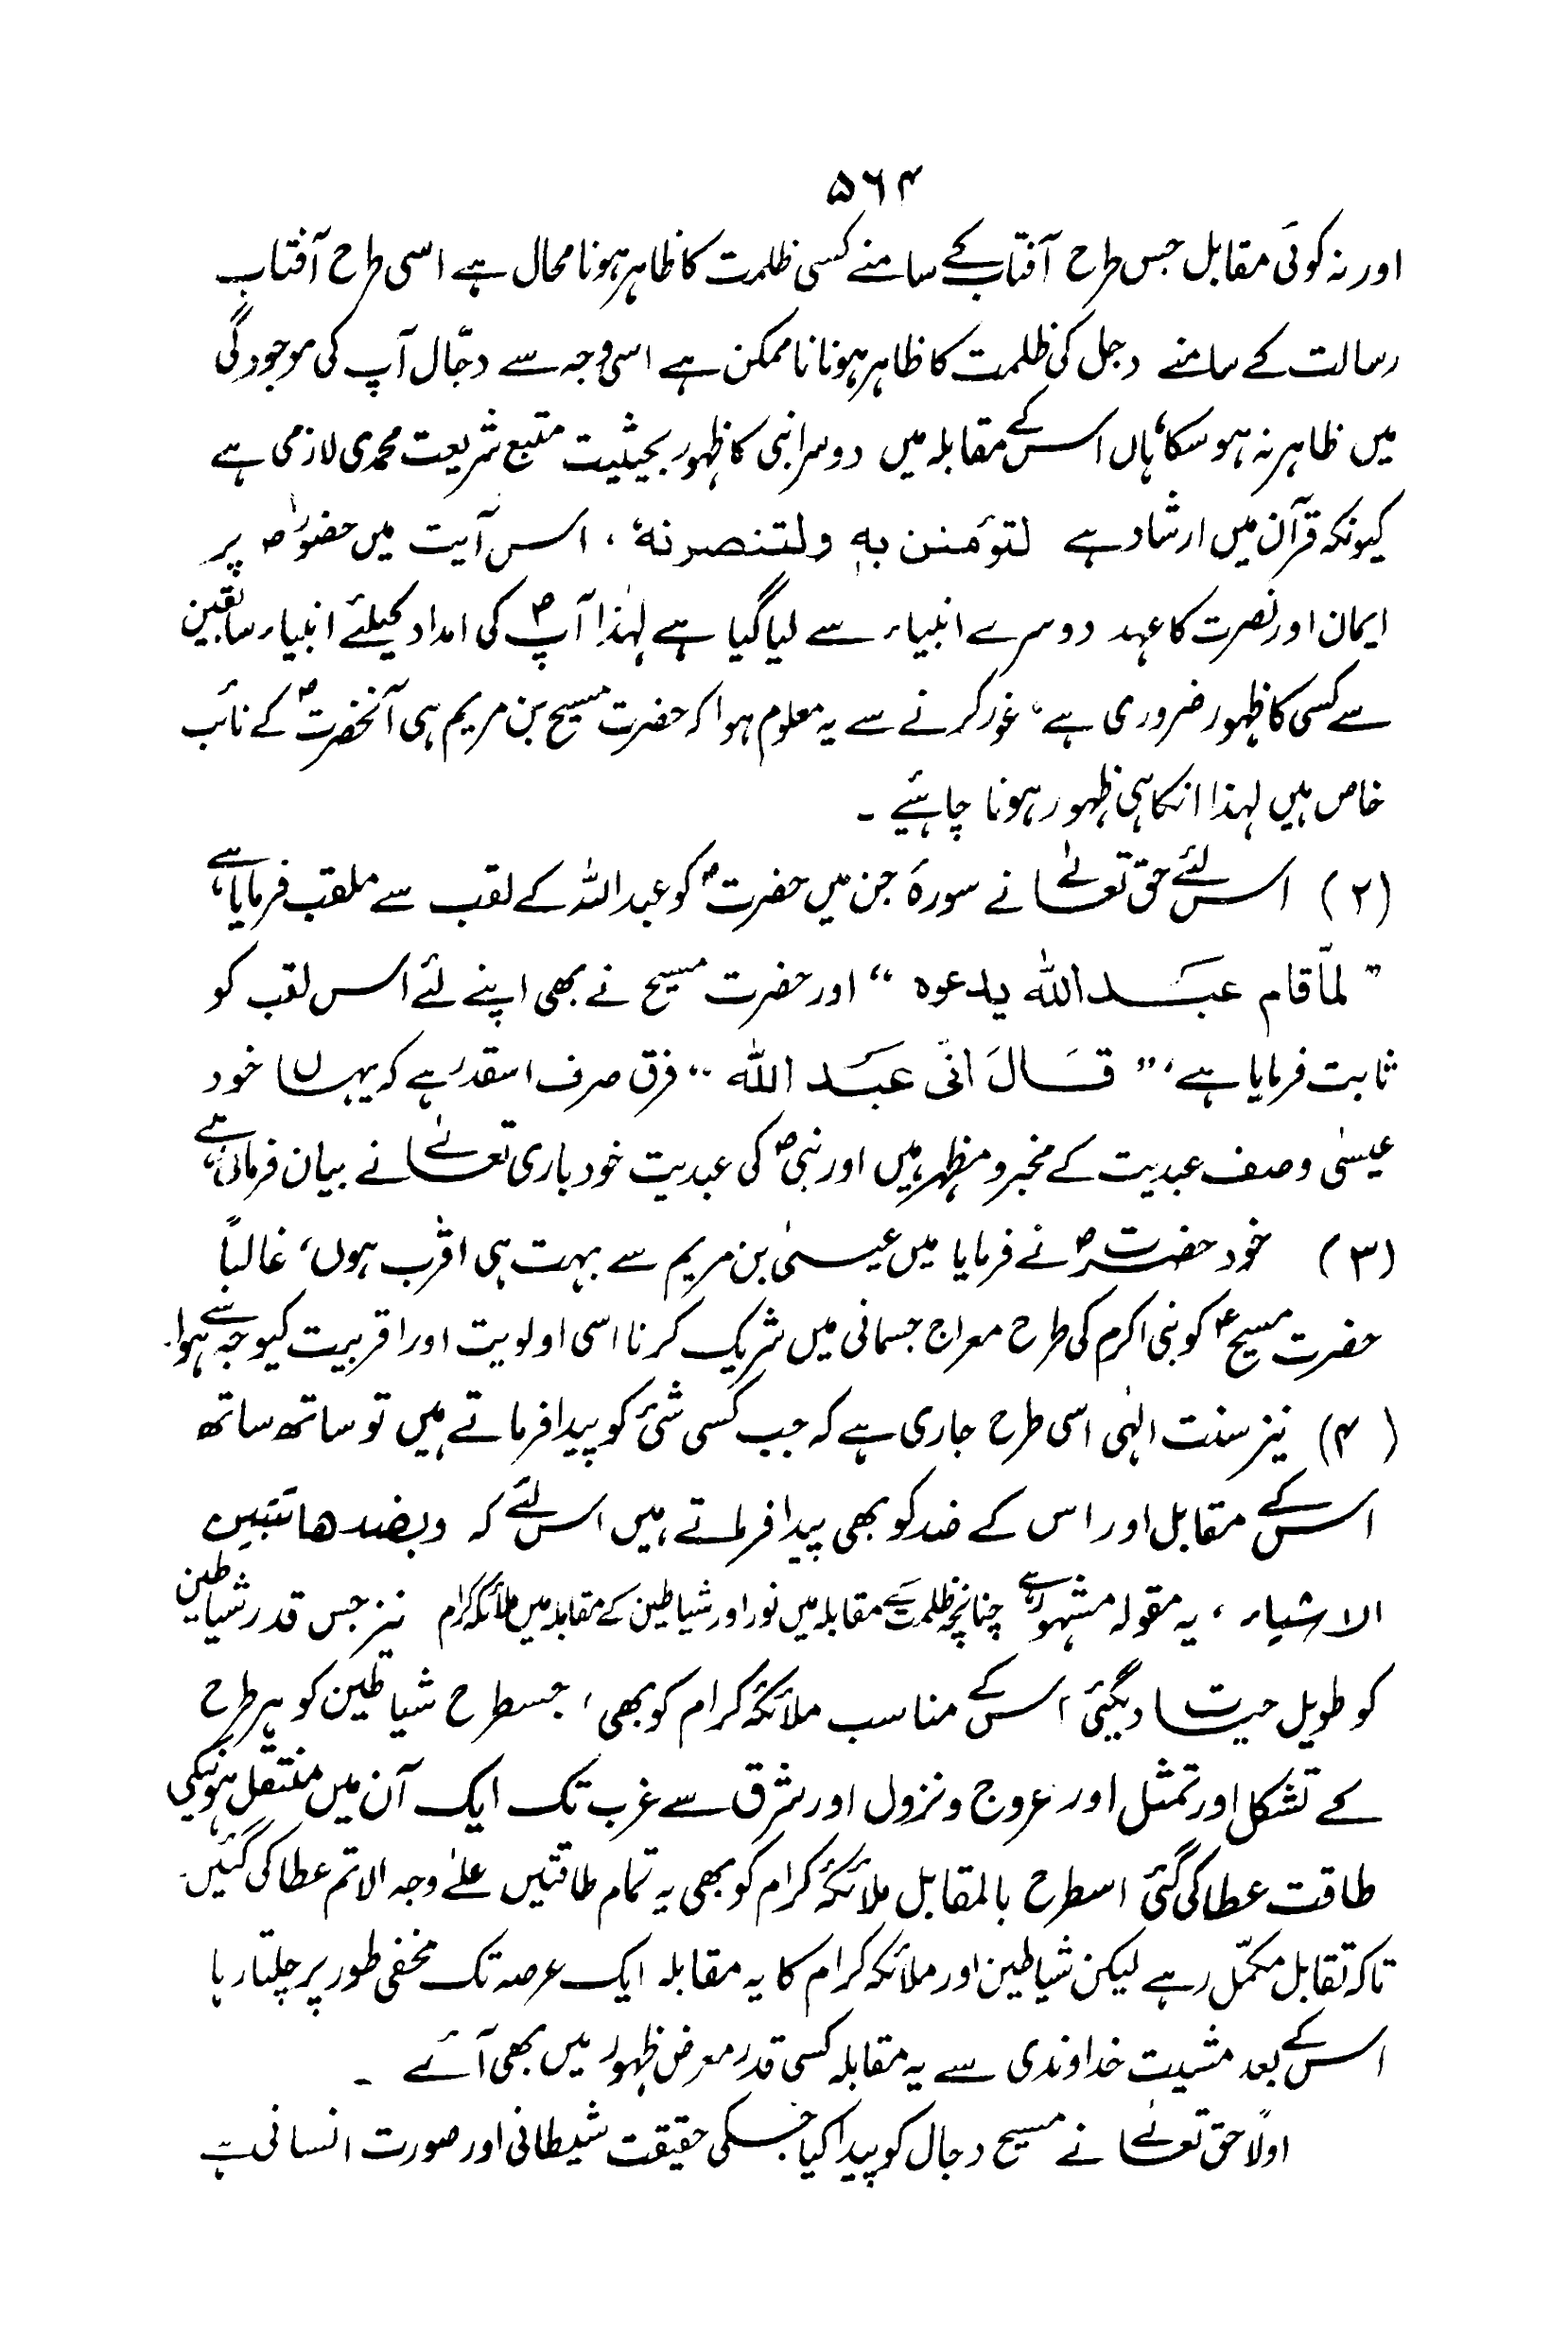 ۵۶۴
اور نہ کوئی مقابل جس طرح آفتاب کے سامنے کسی ظلمت کا ظاہر ہونا محال ہے اسی طرح آفتاب
رسالت کے سامنے دجل کی ظلمت کا ظاہر ہونا ناممکن ہے اسی وجہ سے دجّال آپ کی موجودگی
میں ظاہر نہ ہو سکا، ہاں اس کے مقابلہ میں دوسرا نبی کا ظہور بحیثیت متبع شریعت محمدی لازمی ہے
کیونکہ قرآن میں ارشاد ہے لتؤمنن بہٖ ولتنصرنہٗ ، اس آیت میں حضورؐ پر
ایمان اور نصرت کا عہد دوسرے انبیاء سے لیا گیا ہے لہٰذا آپؐ کی امداد کیلئے انبیاء سابقین
سے کسی کا ظہور ضروری ہے، غور کرنے سے یہ معلوم ہوا کہ حضرت مسیح بن مریم ہی آنحضرتؐ کے نائب
خاص ہیں لہذا انکا ہی ظہور ہونا چاہئیے ۔
(۲) اس لئے حق تعالےٰ نے سورۂ جن میں حضرتؐ کو عبداللہ کے لقب سے ملقب فرمایا ہے،
" لمّا قام عبَد اللہ یدعوہ " اور حضرت مسیح نے بھی اپنے لئے اس لقب کو
ثابت فرمایا ہے، " قَالَ انّی عبَد اللہ " فرق صرف اسقدر ہے کہ یہاں خود
عیسیٰ وصف عبدیت کے مخبر و مظہر ہیں اور نبیؐ کی عبدیت خود باری تعالےٰ نے بیان فرمائی ہے،
(۳) خود حضرتؐ نے فرمایا میں عیسیٰ بن مریم سے بہت ہی اقرب ہوں، غالباً
حضرت مسیحؑ کو نبی اکرم کی طرح معراج جسمانی میں شریک کرنا اسی اولویت اور اقربیت کیوجہ سے ہوا۔
(۴) نیز سنت الہٰی اسی طرح جاری ہے کہ جب کسی شئ کو پیدا فرماتے ہیں تو ساتھ ساتھ
اس کے مقابل اور اس کے ضد کو بھی پیدا فرماتے ہیں اس لئے کہ وبضدھا تتبین
الاشیاء ، یہ مقولہ مشہور ہے چنانچہ ظلمت کے مقابلہ میں نور اور شیاطین کے مقابلہ میں ملائکہ کرام نیز جس قدر شیاطین
کو طویل حیات دیگئی اس کے مناسب ملائکۂ کرام کو بھی، جسطرح شیاطین کو ہر طرح
کے تشکل اور تمثل اور عروج و نزول اور شرق سے غرب تک ایک آن میں منتقل ہونیکی
طاقت عطا کی گئی اسطرح بالمقابل ملائکۂ کرام کو بھی یہ تمام طاقتیں علےٰ وجہ الاتم عطا کی گئیں۔
تاکہ تقابل مکمّل رہے لیکن شیاطین اور ملائکہ کرام کا یہ مقابلہ ایک عرصہ تک مخفی طور پر چلتا رہا
اس کے بعد مشیت خداوندی سے یہ مقابلہ کسی قدر معرض ظہور میں بھی آئے ۔
اولاً حق تعالےٰ نے مسیح دجال کو پیدا کیا جسکی حقیقت شیطانی اور صورت انسانی ہے